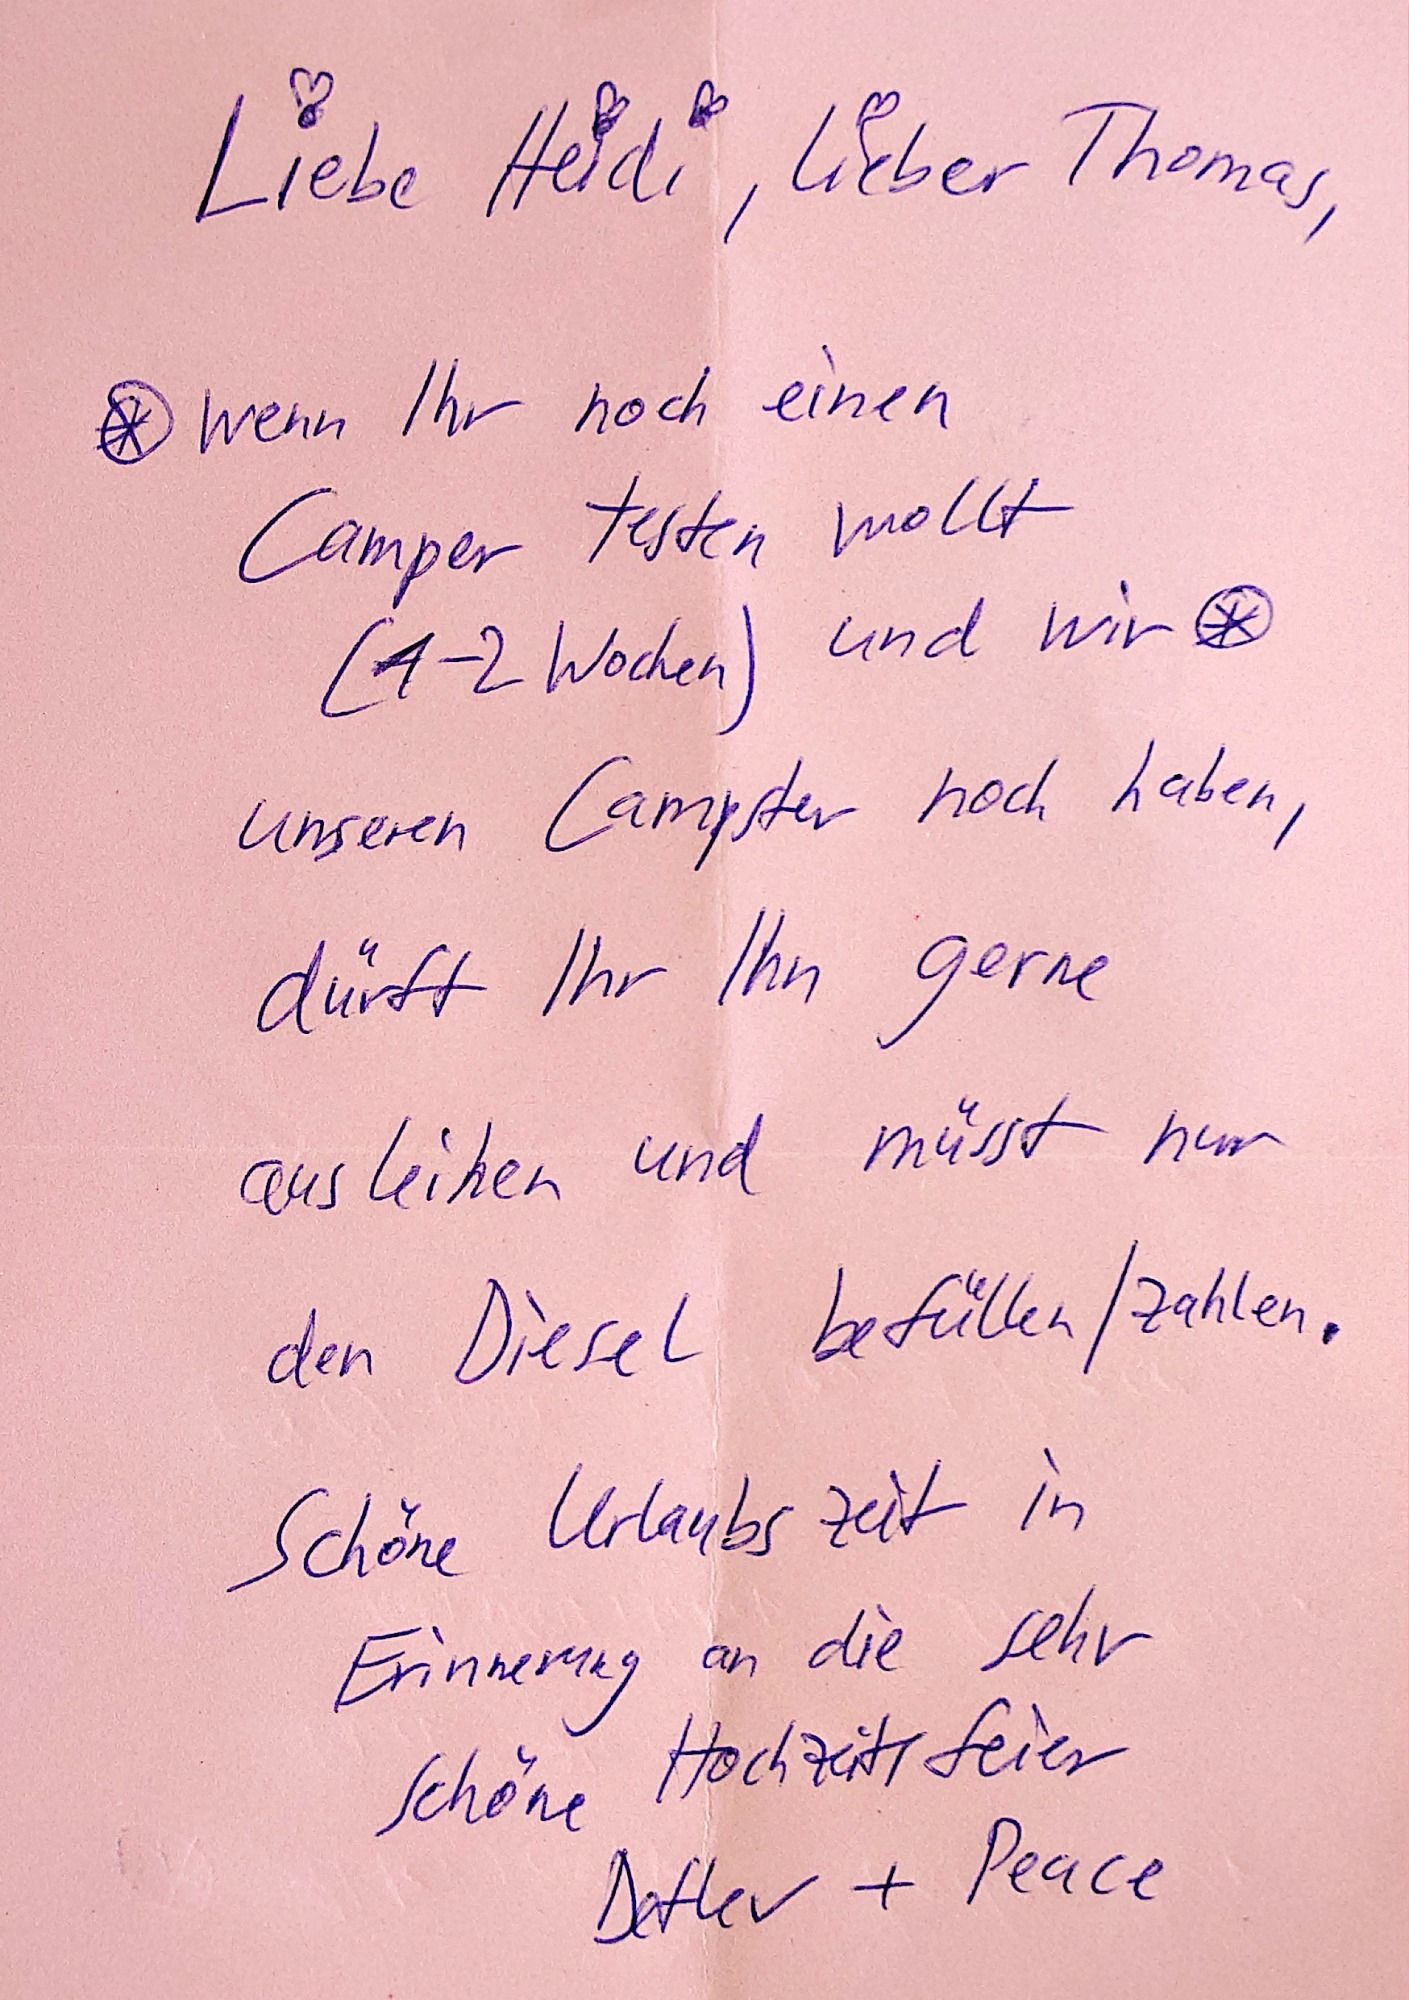 Liebe Heidi, lieber Thomas,
⊛ wenn Ihr noch einen
Camper testen wollt
(1-2 Wochen) und wir ⊛
unseren Campster noch haben,
dürft Ihr Ihn gerne
ausleihen und müsst nur
den Diesel befüllen/zahlen.
Schöne Urlaubszeit in
Erinnerung an die sehr
schöne Hochzeitsfeier
Detlev + Peace